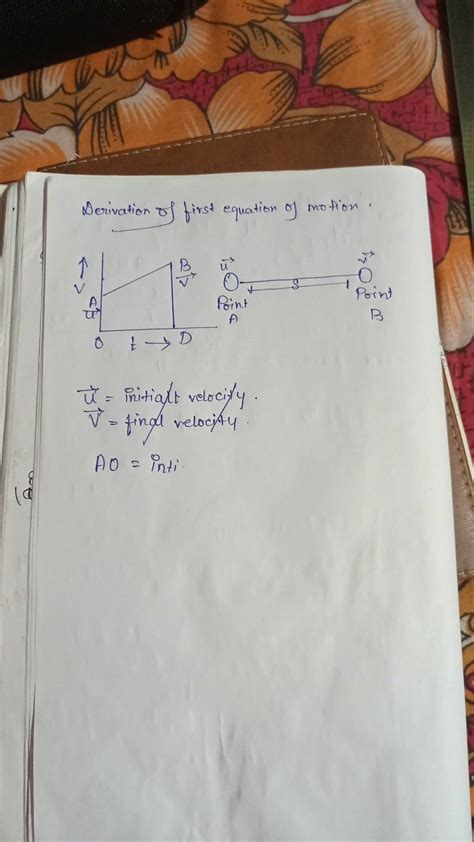 Derivation of first equation of motion.
↑
V
A
u⃗
B
v⃗
O t → D
u⃗
Point
A
S
v⃗
Point
B
u⃗ = initialt velocity.
v⃗ = final velocity.
AO = inti.